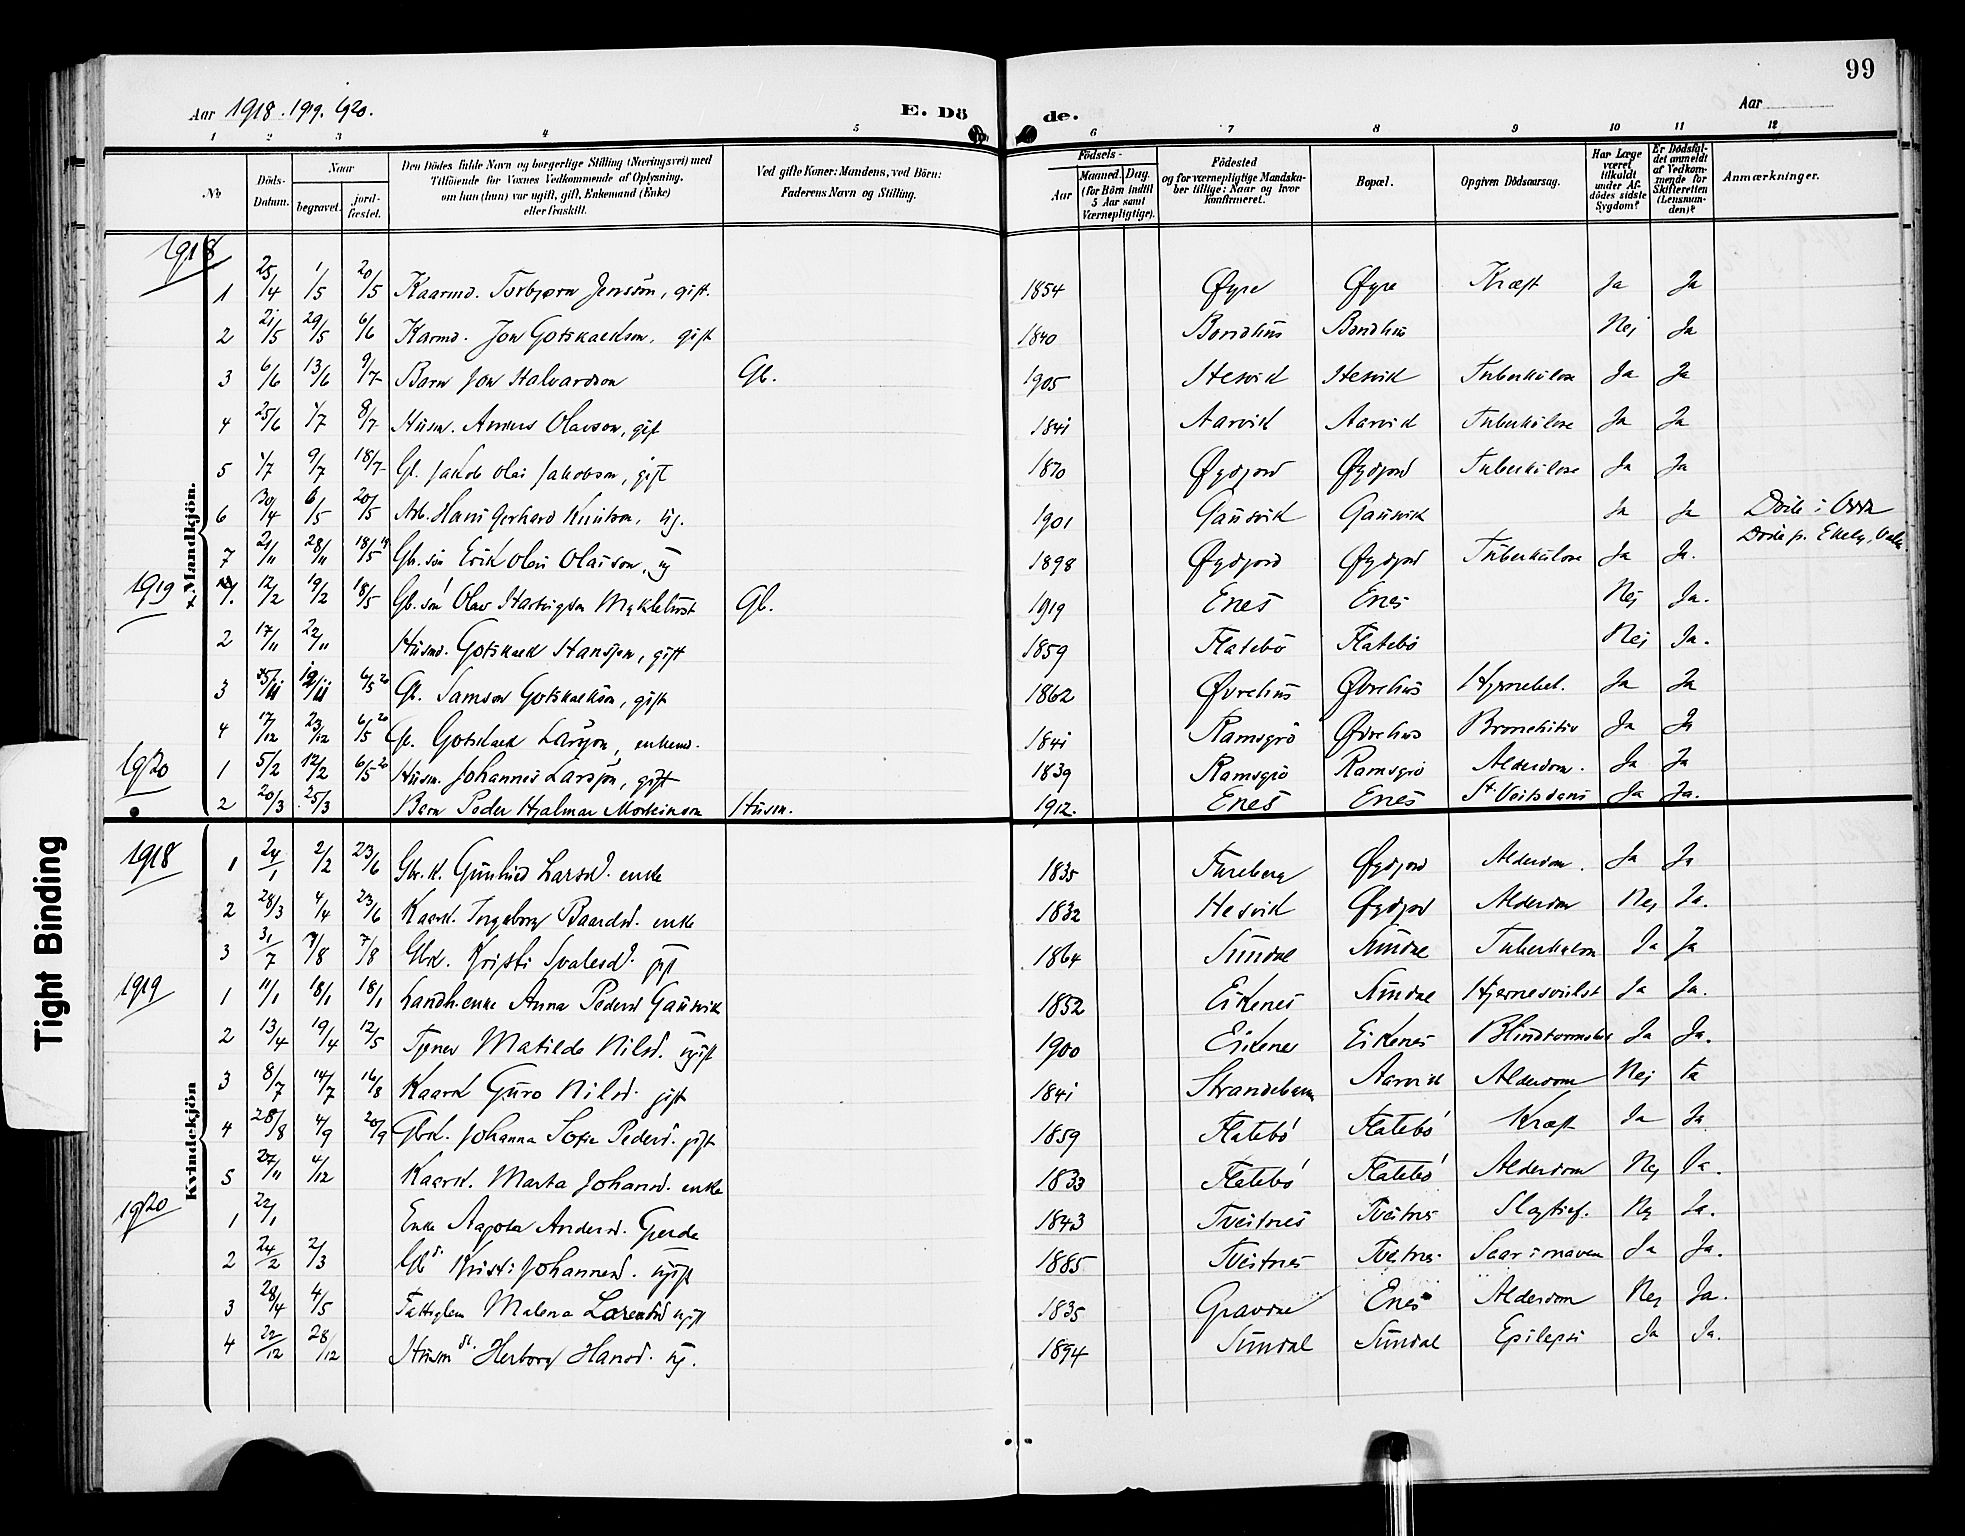 99
Aar 1918. 1919. 1920.
E. Dö de.
Aar
1 2 3 4 5 6 7 8 9 10 11 12
No
Döds-Datum.
Naar
begravet.
jord-fæstet.
Den Dödes fulde Navn og borgerlige Stilling (Næringsvei) med
Tilföiende for Voxnes Vedkommende af Oplysning,
om han (hun) var ugift, gift, Enkemand (Enke)
eller fraskilt.
Ved gifte Koner: Mandens, ved Börn:
Faderens Navn og Stilling.
Födsels-
Aar
Maaned. Dag.
(for Börn indtil
5 Aar samt
Værnepligtige).
Födested
og for værnepligtige Mandska-
ber tillige: Naar og hvor
konfirmeret.
Bopæl.
Opgiven Dödsaarsag.
Har Læge
været
tilkaldt
under Af-
dödes sidste
Sygdom?
Er Dödsfal-
det anmeldt
af Vedkom-
mende for
Skifteretten
(Lensman-
den)?
Anmærkninger.
Mandkjön.
1918
1 25/4 1/5 20/5 Kaarmd. Torbjørn Jensson, gift. 1854 Øyre Øyre Kræft Ja Ja
2 21/5 29/5 6/6 Karmd. Jon Gotskalkson, gift 1840 Bondhus Bondhus Nej Ja
3 6/6 13/6 9/7 Barn Jon Halvardson Gb. 1905 Hesvik Hesvik Tuberkulose Ja Ja
4 25/6 1/7 8/7 Husm. Anders Olavson, gift 1841 Aarvik Aarvik Tuberkulose Ja Ja
5 1/7 9/7 18/7 Gb. Jakob Olai Jakobson, gift 1870 Øydfjord Øydfjord Tuberkulose Ja Ja
6 30/4 6/5 20/5 Arb. Hans Gerhard Knutson, ug. 1901 Gausvik Gausvik Ja Ja Døde i Odda
7 21/11 28/11 18/5 19 Gb. søn Erik Olai Olaison, ug 1898 Øydfjord Øydfjord Tuberkulose Ja Ja. Døde p.
1919
1. 12/2 19/2 18/5 Gb. søn Olav Hartvigson Myklebust Gb. 1919 Enes Enes Nej Ja.
2 17/11 22/11 Husmd. Gotskalk Hansson, gift 1859 Flatebø Flatebø Nej Ja.
3 12/11 6/5 20 Gb. Samson Gotskalkson, gift 1862 Øvrehus Øvrehus Hjernebet. Ja Ja
4 17/12 23/12 6/5 20 Gb. Gotskalk Larsson, enkemd. 1841 Ramsgrø Øvrehus Bronchitis Ja Ja
1920
1 5/2 12/2 6/5 20 Husm. Johannes Larsson, gift 1839 Ramsgrø Ramsgrø Alderdom. Ja Ja
2 20/3 25/3 Barn Peder Hjalmar Morteinson Husm. 1912. Enes Enes St. Veitsdans Ja Ja.
Kvindekjön
1918
1 24/1 2/2 23/6 Gbr. k. Gunhild Larsd. enke 1835 Fureberg Øydfjord Alderdom. Ja Ja
2 28/3 4/4 23/6 Kaark. Ingeborg Baardsd. enke 1832 Hesvik Øydfjord Alderdom Nej Ja.
3 31/7 7/8 7/8 Gbrk. Kristi Svalesd. gift 1864 Sundal Sundal Tuberkulose Ja Ja
1919
1 11/1 18/1 18/1 Landh.enke Anna Pedersd Gausvik 1852 Eikenes Sundal Hjernesvulst Ja Ja.
2 13/4 19/4 12/5 Tjener Matilde Nilsd. ugift 1900 Eikenes Eikenes Blindtarmsbet. Ja Ja.
3 8/7 14/7 16/8 Kaark Guro Nilsd. gift 1841 Strandebarm Aarvik Alderdom Nej Ja
4 28/8 4/9 20/9 Gbrk. Johanna Sofie Pedersd. gift 1859 Flatebø Flatebø Kræft Ja Ja
5 27/11 4/12 Kaark. Marta Johansd. enke 1833 Flatebø Flatebø Alderdom Nej Ja.
1920
1 22/1 Enke Aagota Andersd. Gjerde 1843 Tveitnes Tveitnes Slagtilf. Nej Ja.
2 24/2 2/3 Gbd. Kristi Johannesd. ugift 1885 Tveitnes Tveitnes Saar i maven Ja Ja.
3 28/4 4/5 Fattiglem Malena Larentsd ugift 1835 Gravdal Enes Alderdom Nej Ja.
4 22/12 28/12 Husm dt. Herborg Hansd. ug. 1894 Sundal Sundal Epilepsi Ja Ja.
Tight Binding